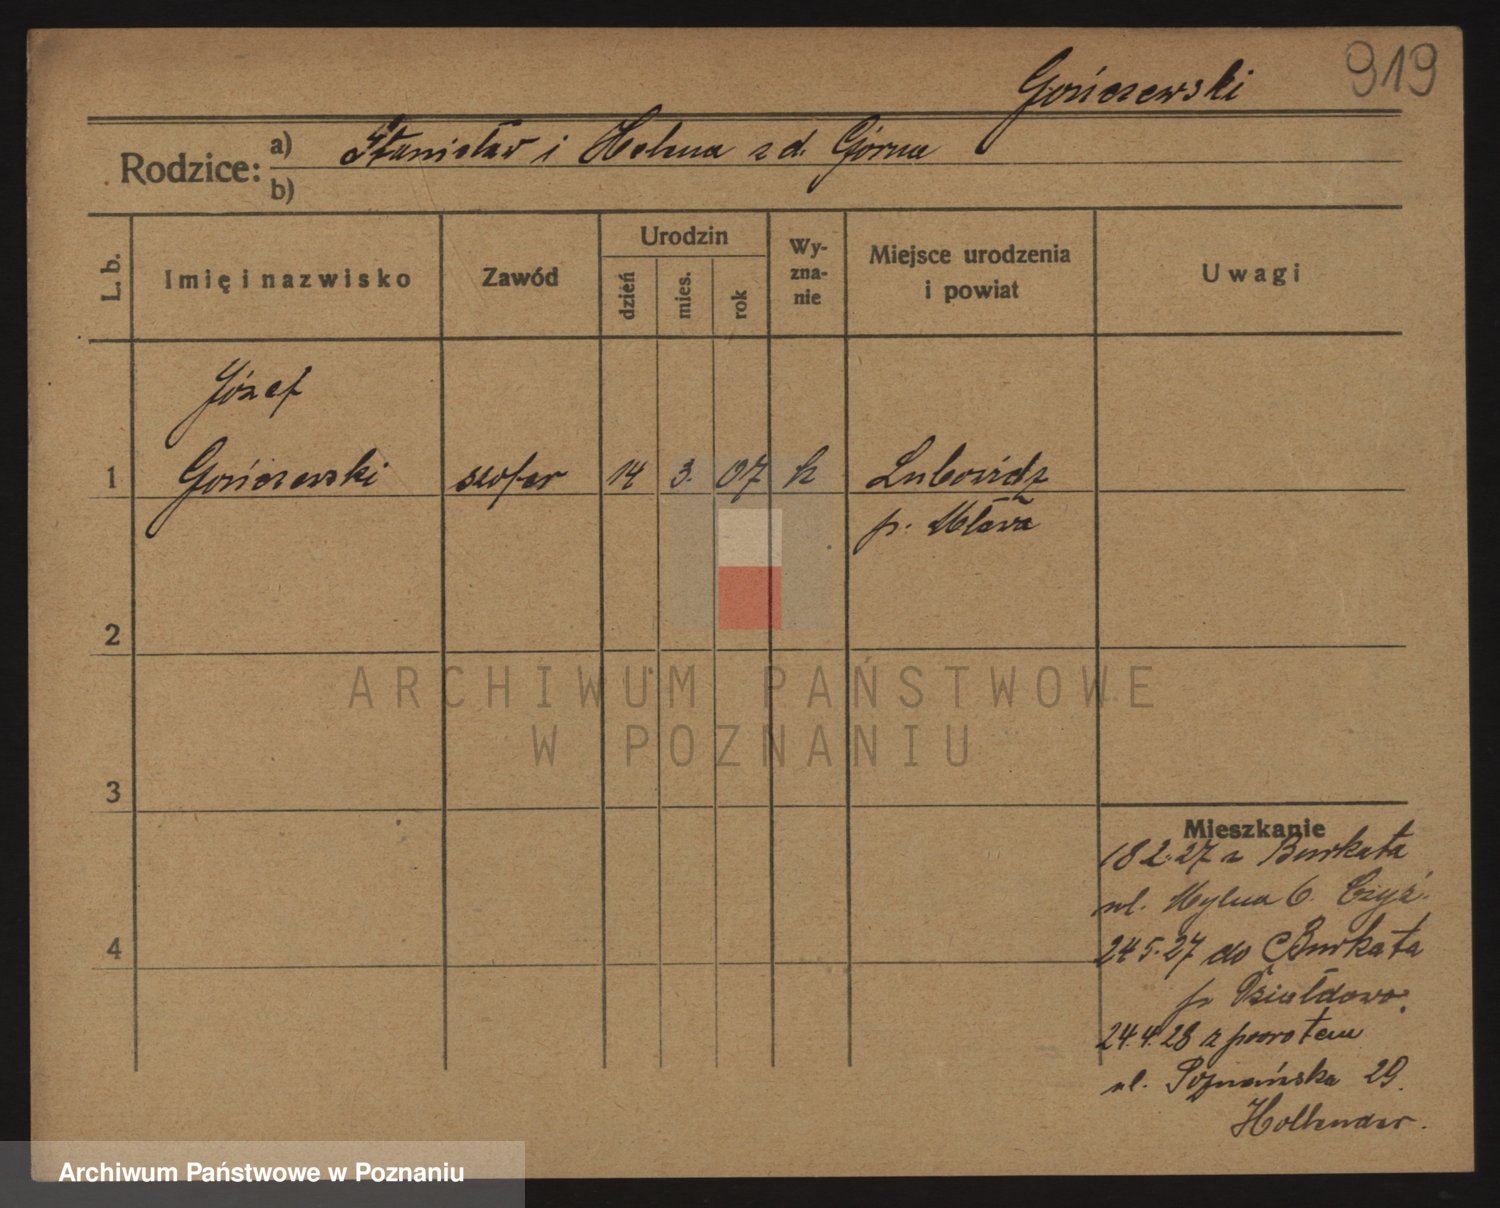 919
Gończewski
Rodzice:
a) Stanisław i Helena z d. Górna
b)
L. b.
Imię i nazwisko
Zawód
Urodzin
dzień
mies.
rok
Wy-
zna-
nie
Miejsce urodzenia
i powiat
Uwagi
Józef
1 Gończewski szofer 14 3. 07 k Lubowidz
p. Mława
2
3
4
Mieszkanie
18 2.27 z Burkata
ul. Mylna 6. Czyż.
24 5.27 do Burkata
p. Działdowo.
24.4.28 z powrotem
ul. Poznańska 29.
Hollender.
ARCHIWUM PAŃSTWOWE
W POZNANIU
Archiwum Państwowe w Poznaniu